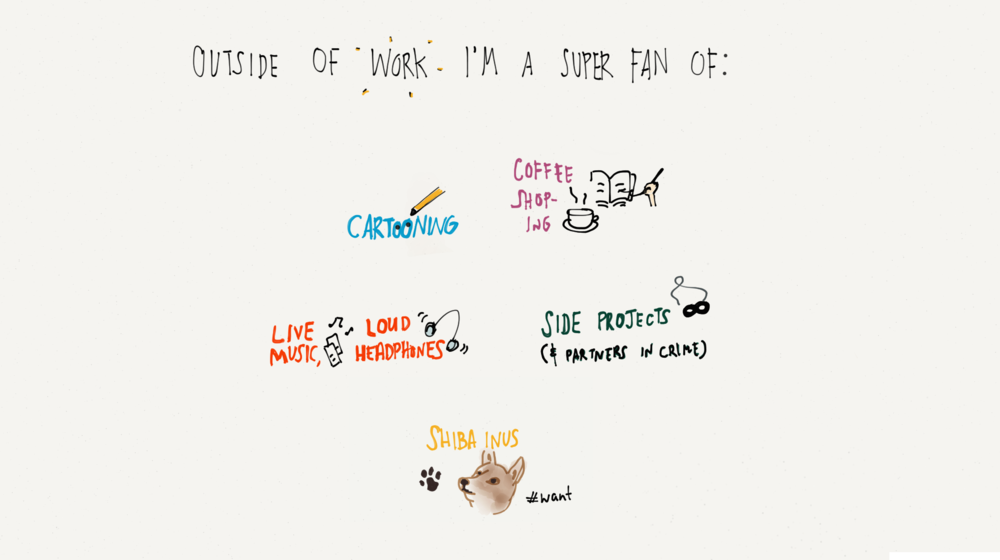 OUTSIDE OF WORK I'M A SUPER FAN OF:
CARTOONING
COFFEE
SHOP-
ING
LIVE
MUSIC,
LOUD
HEADPHONES
SIDE PROJECTS
(& PARTNERS IN CRIME)
SHIBA INUS
#want